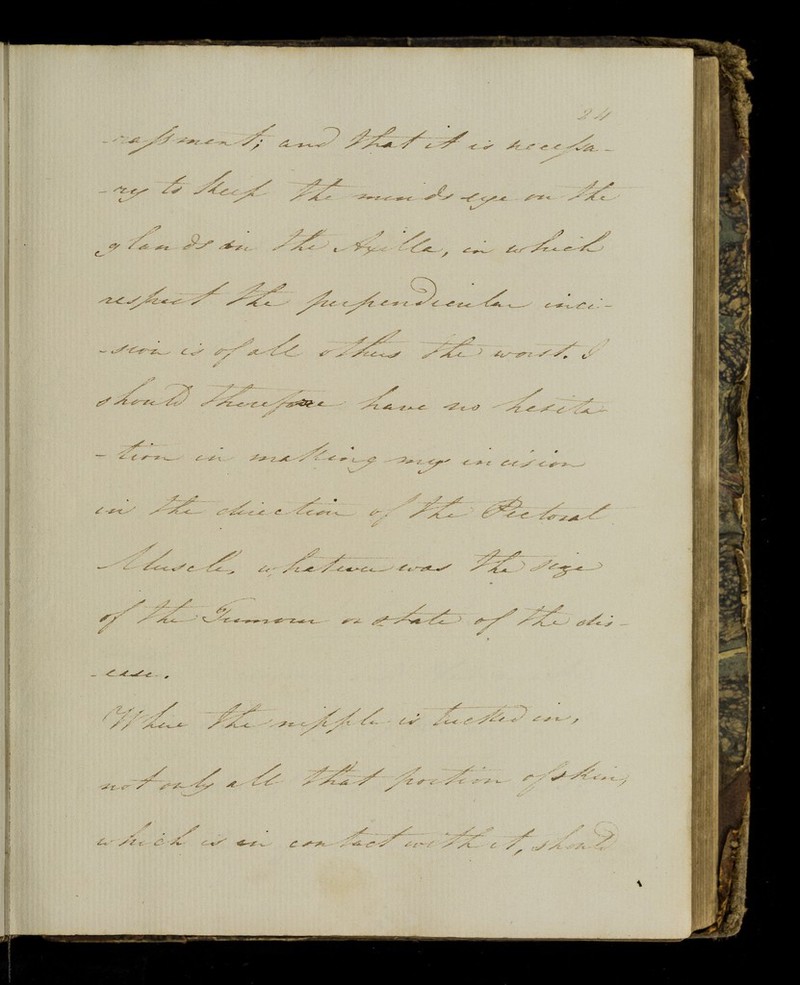 24
-rassment; and that it is necessa-
-ry to keep the minds eye on the
glands in the Axilla, in which
respect the perpendicular inci-
-sion is of all others the worst. I
should therefore have no hesita-
-tion in making my incision
in the direction of the Pectoral
Muscle, whatever was the size
of the Tumour or state of the dis-
-ease.
Where the nipple is tucked in,
not only all that portion of skin,
which is in contact with it, should